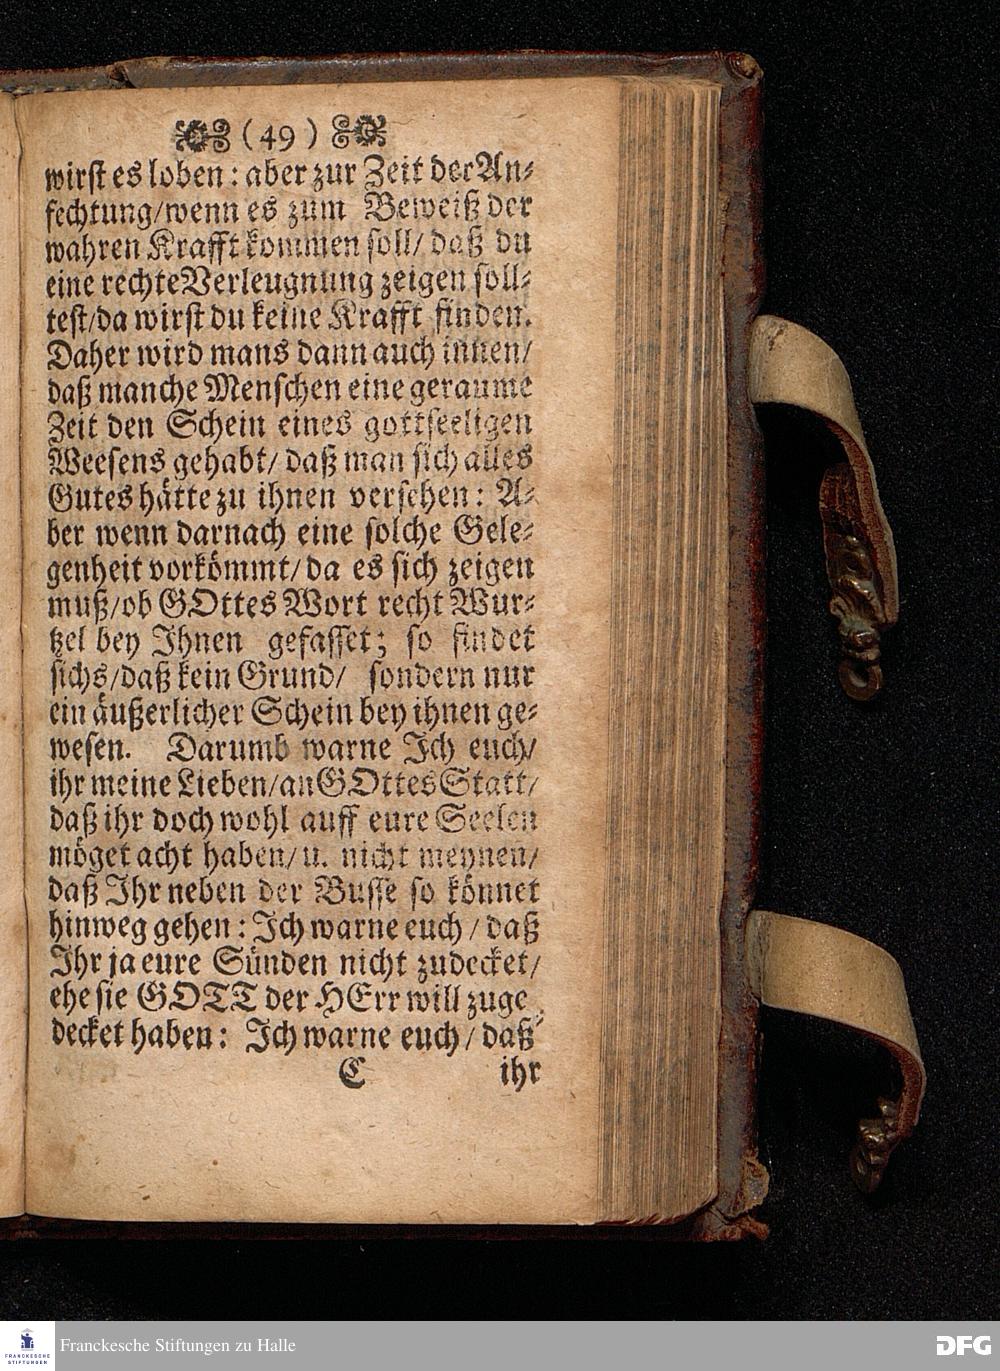 (49)
wirst es loben: aber zur Zeit der An⸗
fechtung/wenn es zum Beweiß der
wahren Krafft kommen soll/ daß du
eine rechte Verleugnung zeigen soll⸗
test/da wirst du keine Krafft finden.
Daher wird mans dann auch innen/
daß manche Menschen eine geraume
Zeit den Schein eines gottseeligen
Weesens gehabt/ daß man sich alles
Gutes hätte zu ihnen versehen: A⸗
ber wenn darnach eine solche Gele⸗
genheit vorkömmt/da es sich zeigen
muß/ob GOttes Wort recht Wur⸗
tzel bey Ihnen gefasset; so findet
sichs/daß kein Grund/ sondern nur
ein äußerlicher Schein bey ihnen ge⸗
wesen. Darumb warne Ich euch/
ihr meine Lieben/an GOttes Statt/
daß ihr doch wohl auff eure Seelen
möget acht haben/u. nicht meynen/
daß Ihr neben der Busse so könnet
hinweg gehen: Ich warne euch/ daß
Ihr ja eure Sünden nicht zudecket/
ehe sie GOTT der HErr will zuge⸗
decket haben: Ich warne euch/ daß
C ihr
FRANCKESCHE STIFTUNGEN
Franckesche Stiftungen zu Halle
DFG